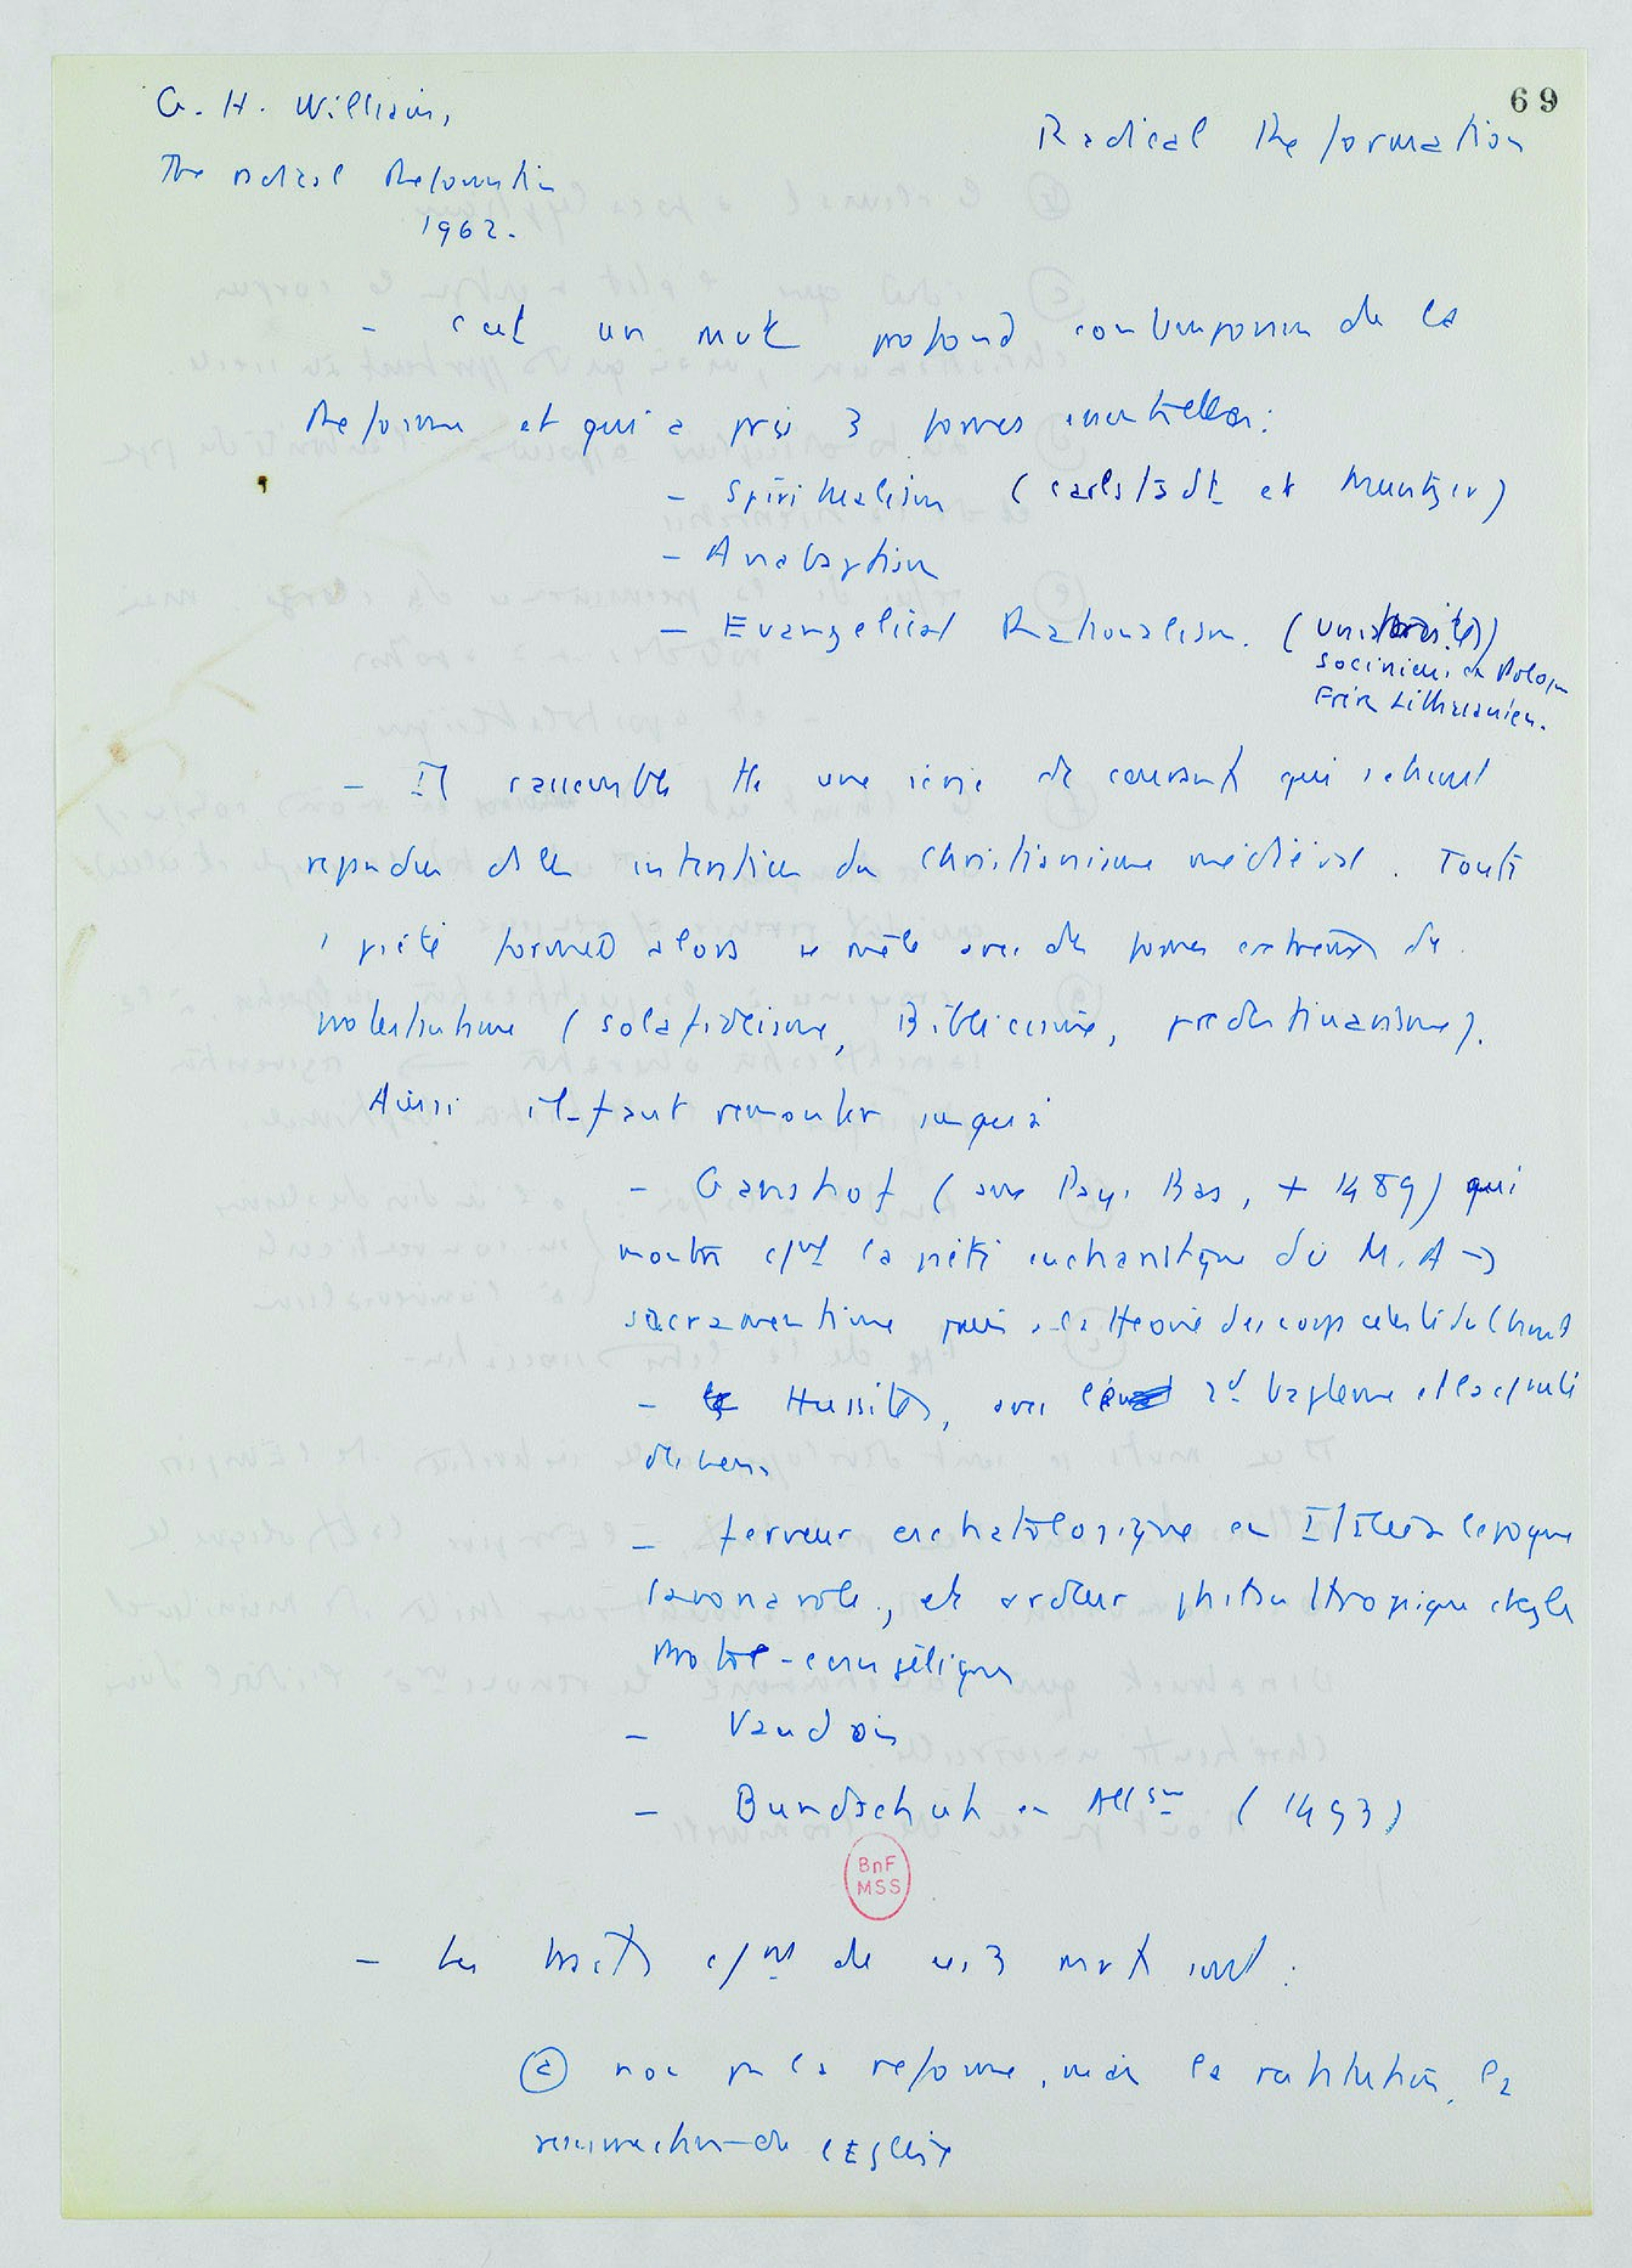 69
G. H. Williams,
Radical Reformation
The radical Reformation
1962.
- c'est un mvt profond contemporain de la
Reforme et qui a pris 3 formes essentielles :
- Spiritualism (Carlstadt et Muntzer)
- Anabaptism
- Evangelical Rationalism. (Unitarites)
sociniens en Pologne
Frère Lithuaniens.
- Il rassemble tte une série de courants qui s'étaient
repandus ds les du christianisme médiéval. Toute
piété formée alors se mêle avec des formes extremes de
protestantisme (solafideisme, Biblicisme, predestinarisme).
Ainsi il faut remonter jusqu'à
- Gansfort (aux Pays Bas, + 1489) qui
montre cmt la piété eucharistique du M. A →
sacramentisme puis à la théorie des corps celeste du Christ
- Hussites, avec 2d baptême et la cmté
de biens
- ferveur eschatologique en Italie à l'epoque
Savonarole, et ardeur philanthropique chez les
Proto-evangéliques
- Vaudois
- Bundschuh en Allgne (1493)
BnF
MSS
- Les traits cmns de ces 3 mvts sont :
(a) non pas la reforme, mais la restitution, la
resurrection de l'Eglise